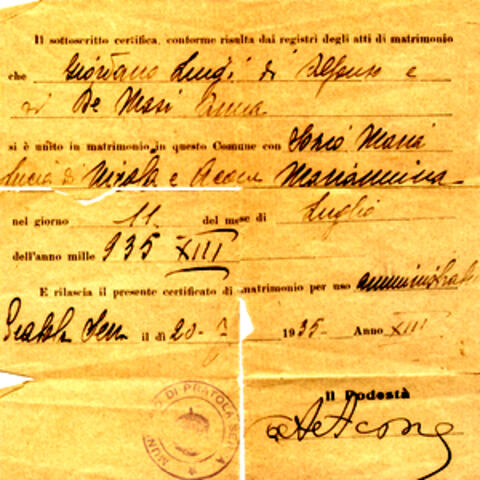 Il sottoscritto certifica, conforme risulta dai registri degli atti di matrimonio
che Giordano Luigi di Alfonso e
di De Masi Anna
si è unito in matrimonio in questo Comune con Maria
Lucia di Nicola e Mariannina
nel giorno 11 del mese di Luglio
dell'anno mille 935 XIII
E rilascia il presente certificato di matrimonio per uso
Pratola Serra il dì 20- 1935- Anno XIII
Il Podestà
MUNICIPIO DI PRATOLA SERRA